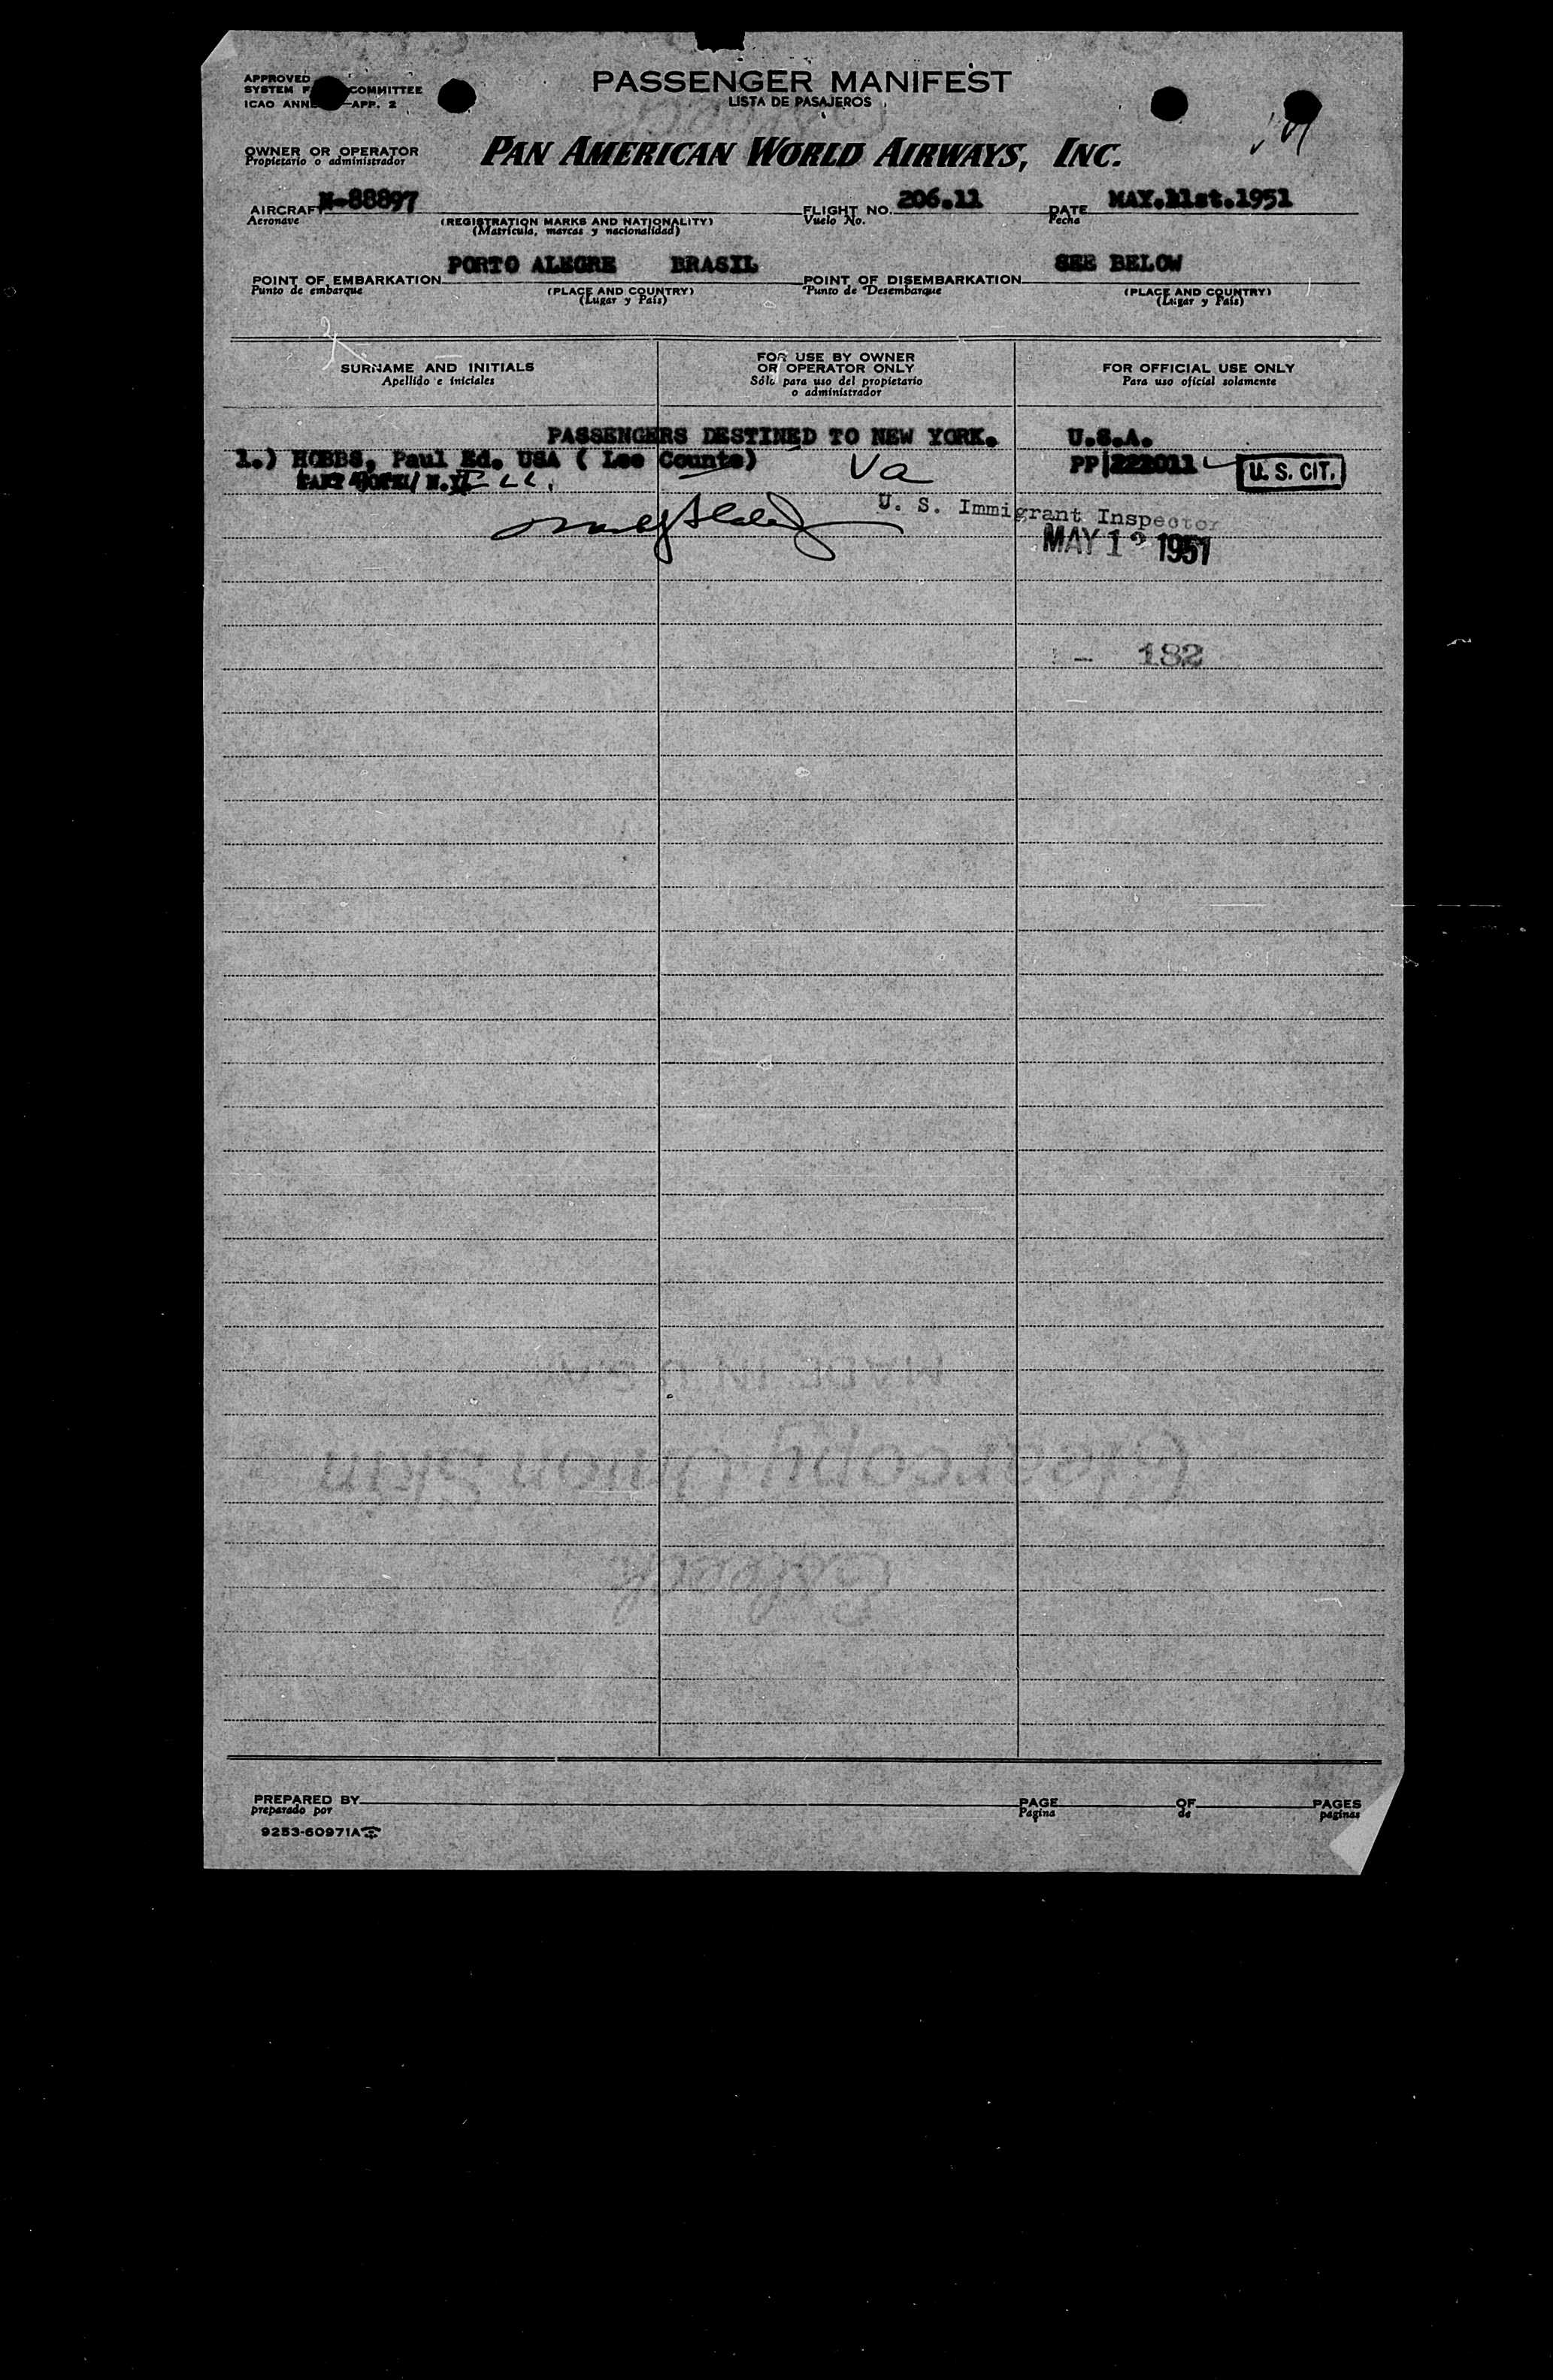 APPROVED
SYSTEM COMMITTEE
ICAO APP. 2
PASSENGER MANIFEST
LISTA DE PASAJEROS
OWNER OR OPERATOR
Propietario o administrador
PAN AMERICAN WORLD AIRWAYS, INC.
AIRCRAFT N-88897 FLIGHT NO. 206.11 DATE MAY.11st.1951
Aeronave (REGISTRATION MARKS AND NATIONALITY) Vuelo No. Fecha
(Matricula, marcas y nacionalidad)
POINT OF EMBARKATION PORTO ALEGRE BRASIL POINT OF DISEMBARKATION SEE BELOW
Punto de embarque (PLACE AND COUNTRY) Punto de Desembarque (PLACE AND COUNTRY)
(Lugar y País) (Lugar y País)
SURNAME AND INITIALS
Apellido e iniciales
FOR USE BY OWNER
OR OPERATOR ONLY
Sólo para uso del propietario
o administrador
FOR OFFICIAL USE ONLY
Para uso oficial solamente
PASSENGERS DESTINED TO NEW YORK. U.S.A.
1.) HOBBS, Paul Ed. USA ( Lee Counte) Va PP 222011 U. S. CIT.
U. S. Immigrant Inspector
MAY 12 1951
182
MADE IN
PREPARED BY PAGE OF PAGES
preparado por Pagina de paginas
9253-60971A